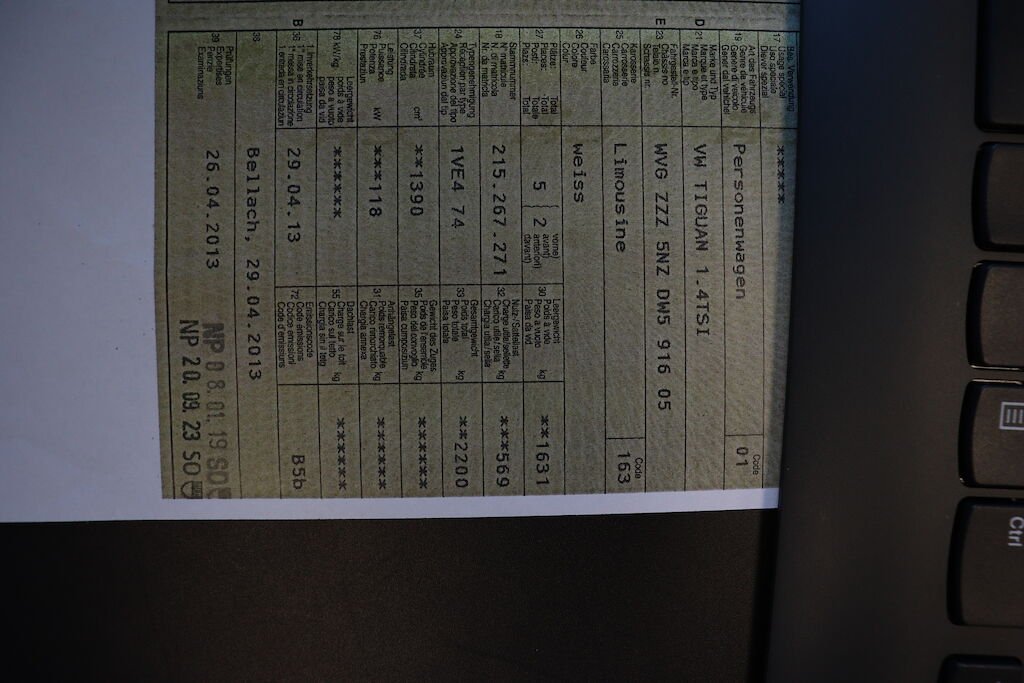 17 Bes. Verwendung
Usage spécial
Uso speciale
Diever spezial
*****
19 Art des Fahrzeugs
Genre de véhicule
Genere di veicolo
Gener dal vehichel
Personenwagen
Code
01
D 21 Marke und Typ
Marque et type
Marca e tipo
Marca e tip
VW TIGUAN 1.4TSI
E 23 Fahrgestell-Nr.
Châssis no
Telaio n.
Schassis nr.
WVG ZZZ 5NZ DW5 916 05
25 Karosserie
Carrosserie
Carrozzeria
Carossaria
Limousine
Code
163
26 Farbe
Couleur
Colore
Colur
weiss
27 Plätze: Total
Places: Total
Posti: Totale
Plazs: Total
5
2
vorne)
avant)
anteriori)
davant)
30 Leergewicht
Poids à vide
Peso a vuoto
Paisa da vid
kg
**1631
18 Stammnummer
N° matricule
N. di matricola
Nr. da matricla
215.267.271
32 Nutz-/Sattellast
Charge utile/sellette
Carico utile/sella
Chargia utila/sella
kg
***569
24 Typengenehmigung
Réception par type
Approvazione del tipo
Approvaziun dal tip
1VE4 74
33 Gesamtgewicht
Poids total
Peso totale
Paisa totala
kg
**2200
37 Hubraum
Cylindrée
Cilindrata
Cilindrada
cm³
**1390
35 Gewicht des Zuges
Poids de l'ensemble
Peso del convoglio
Paisa cumposiziun
kg
******
76 Leistung
Puissance
Potenza
Prestaziun
kW
***118
31 Anhängelast
Poids remorquable
Carico rimorchiato
Chargia annexa
kg
******
78 kW/kg
Leergewicht
poids à vide
peso a vuoto
paisa da vid
******
55 Dachlast
Charge sur le toit
Carico sul tetto
Chargia sin il tetg
kg
******
B 36 1. Inverkehrsetzung
1re mise en circulation
1a messa in circolazione
1. entrada en circulaziun
29.04.13
72 Emissionscode
Code émissions
Codice emissioni
Code d'emissiuns
B5b
38
Bellach, 29.04.2013
39 Prüfungen
Expertises
Perizie
Examinaziuns
26.04.2013
NP 08.01.19 SO
NP 20.09.23 SO
Ctrl